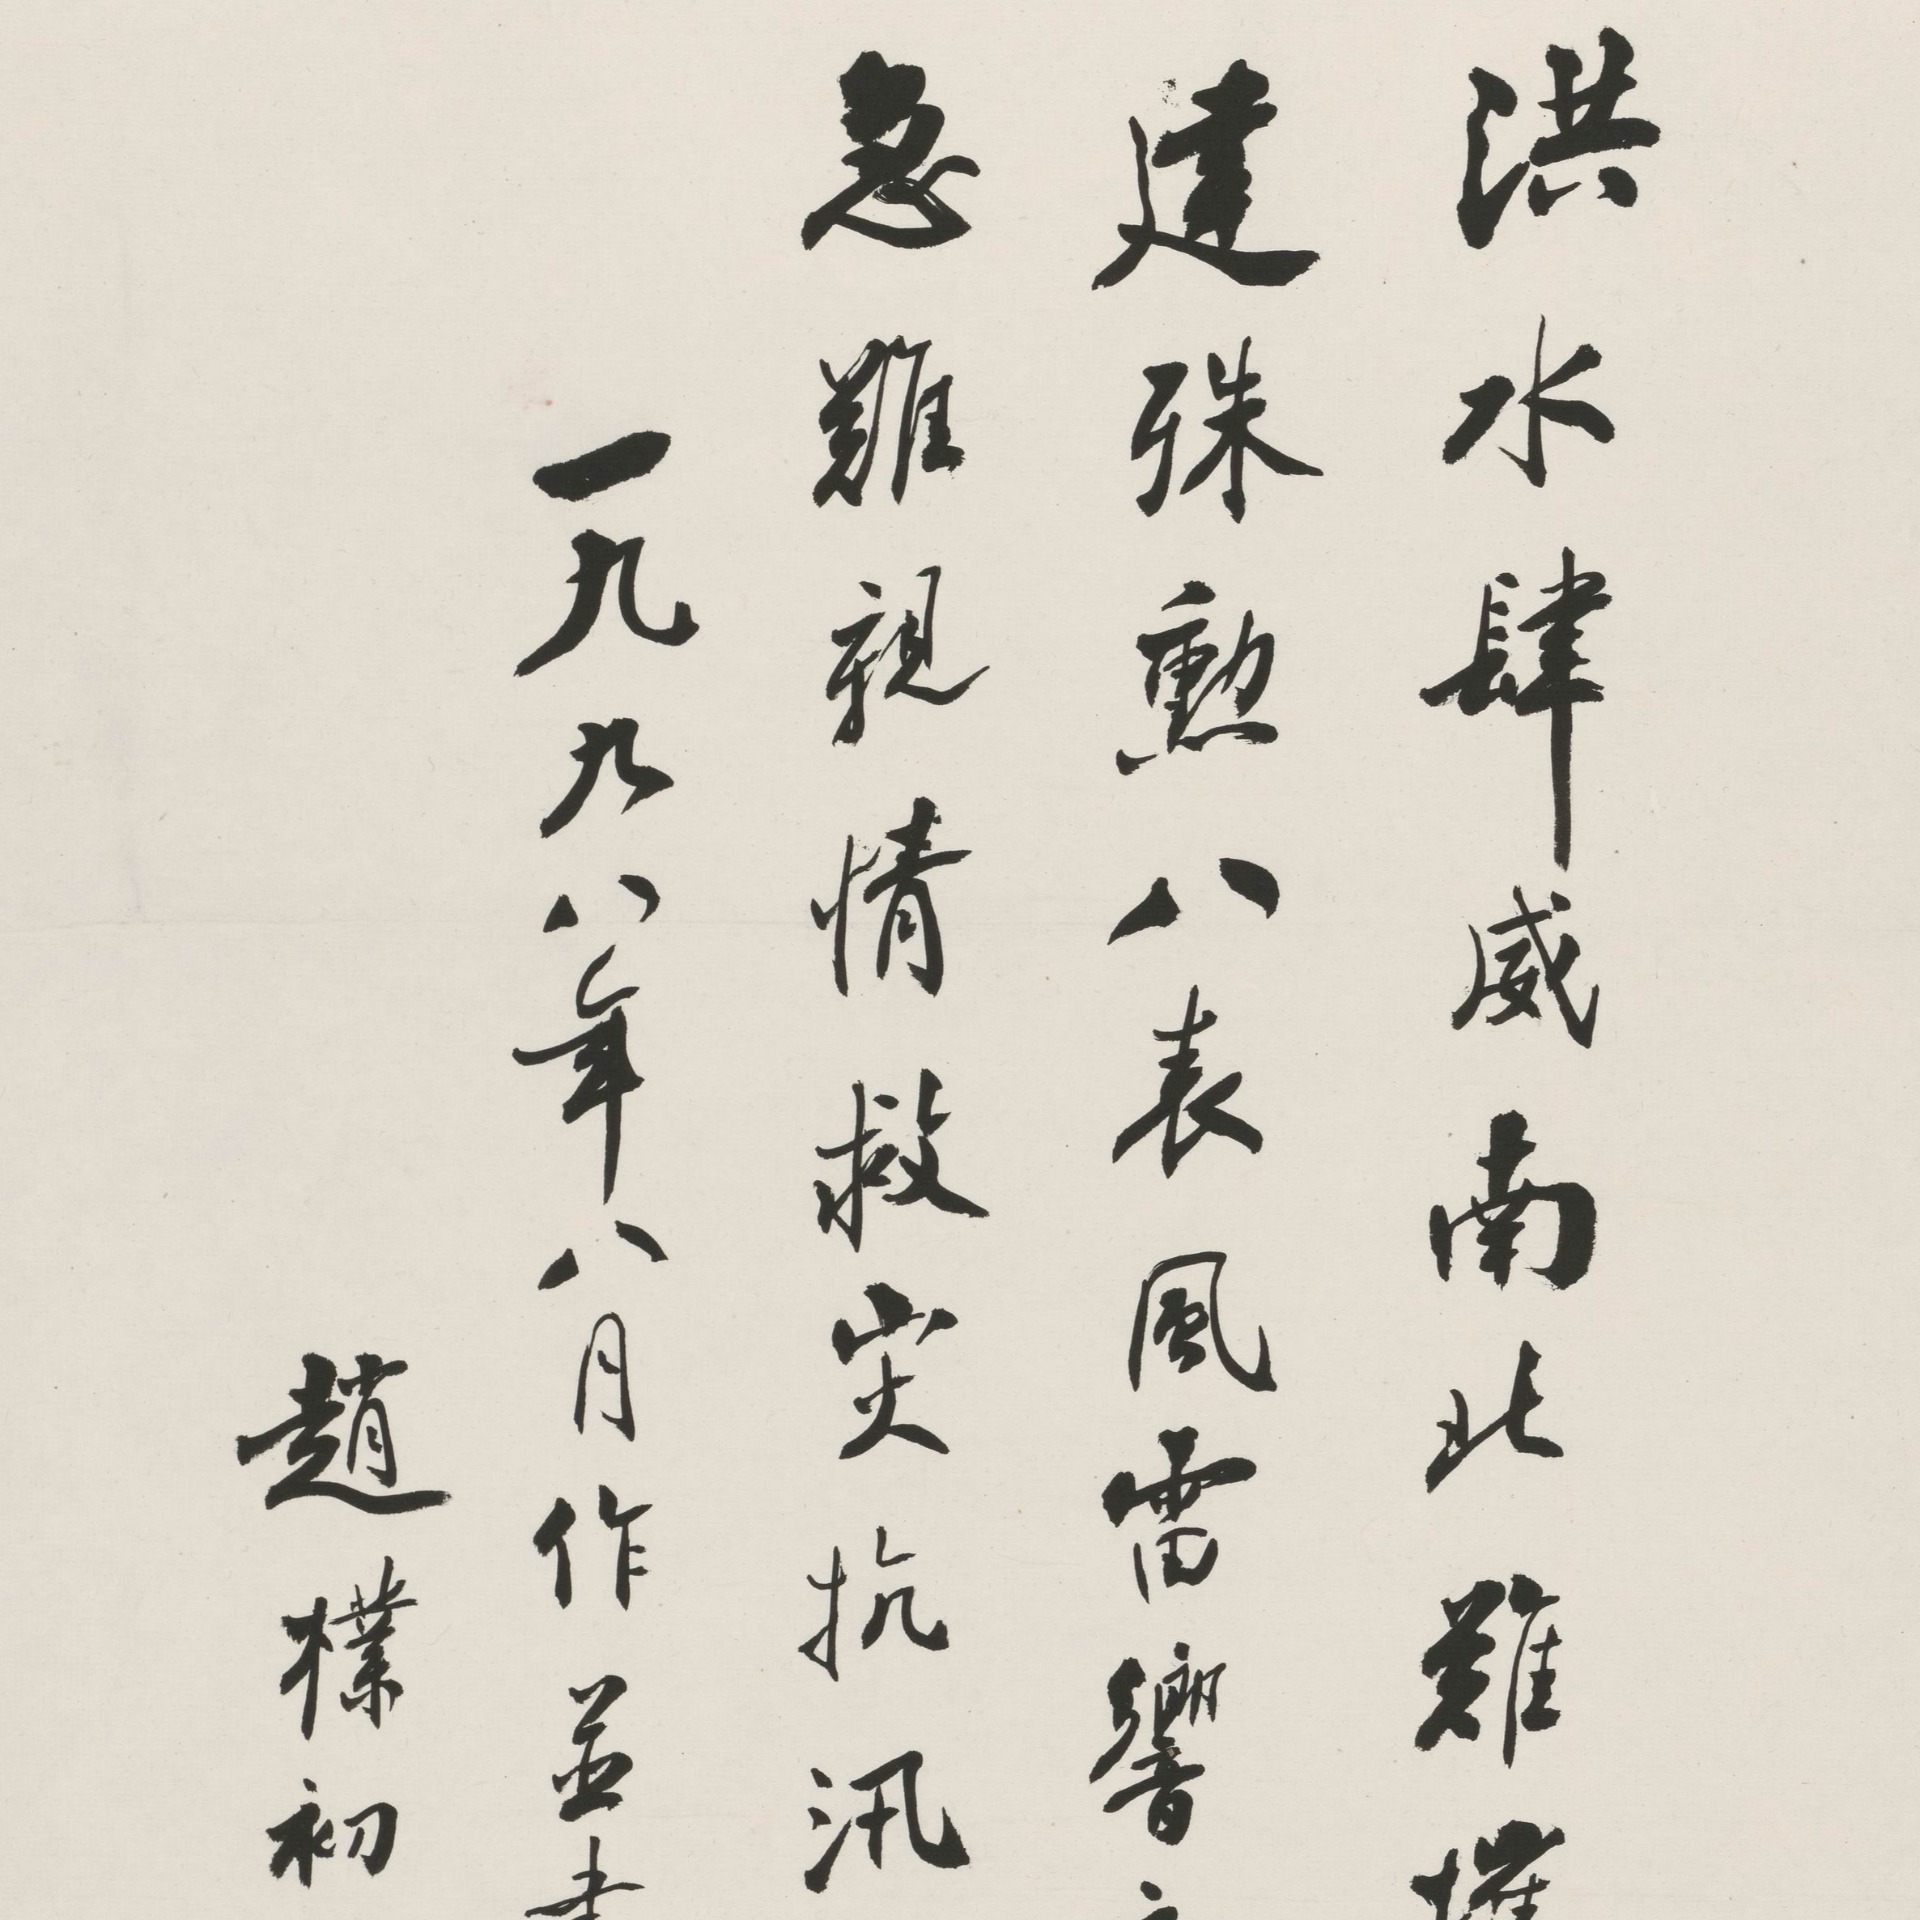 洪水肆威南北難摧
建殊勳八表風雷響
急難親情救災抗汛
一九九八年八月作並書
趙樸初